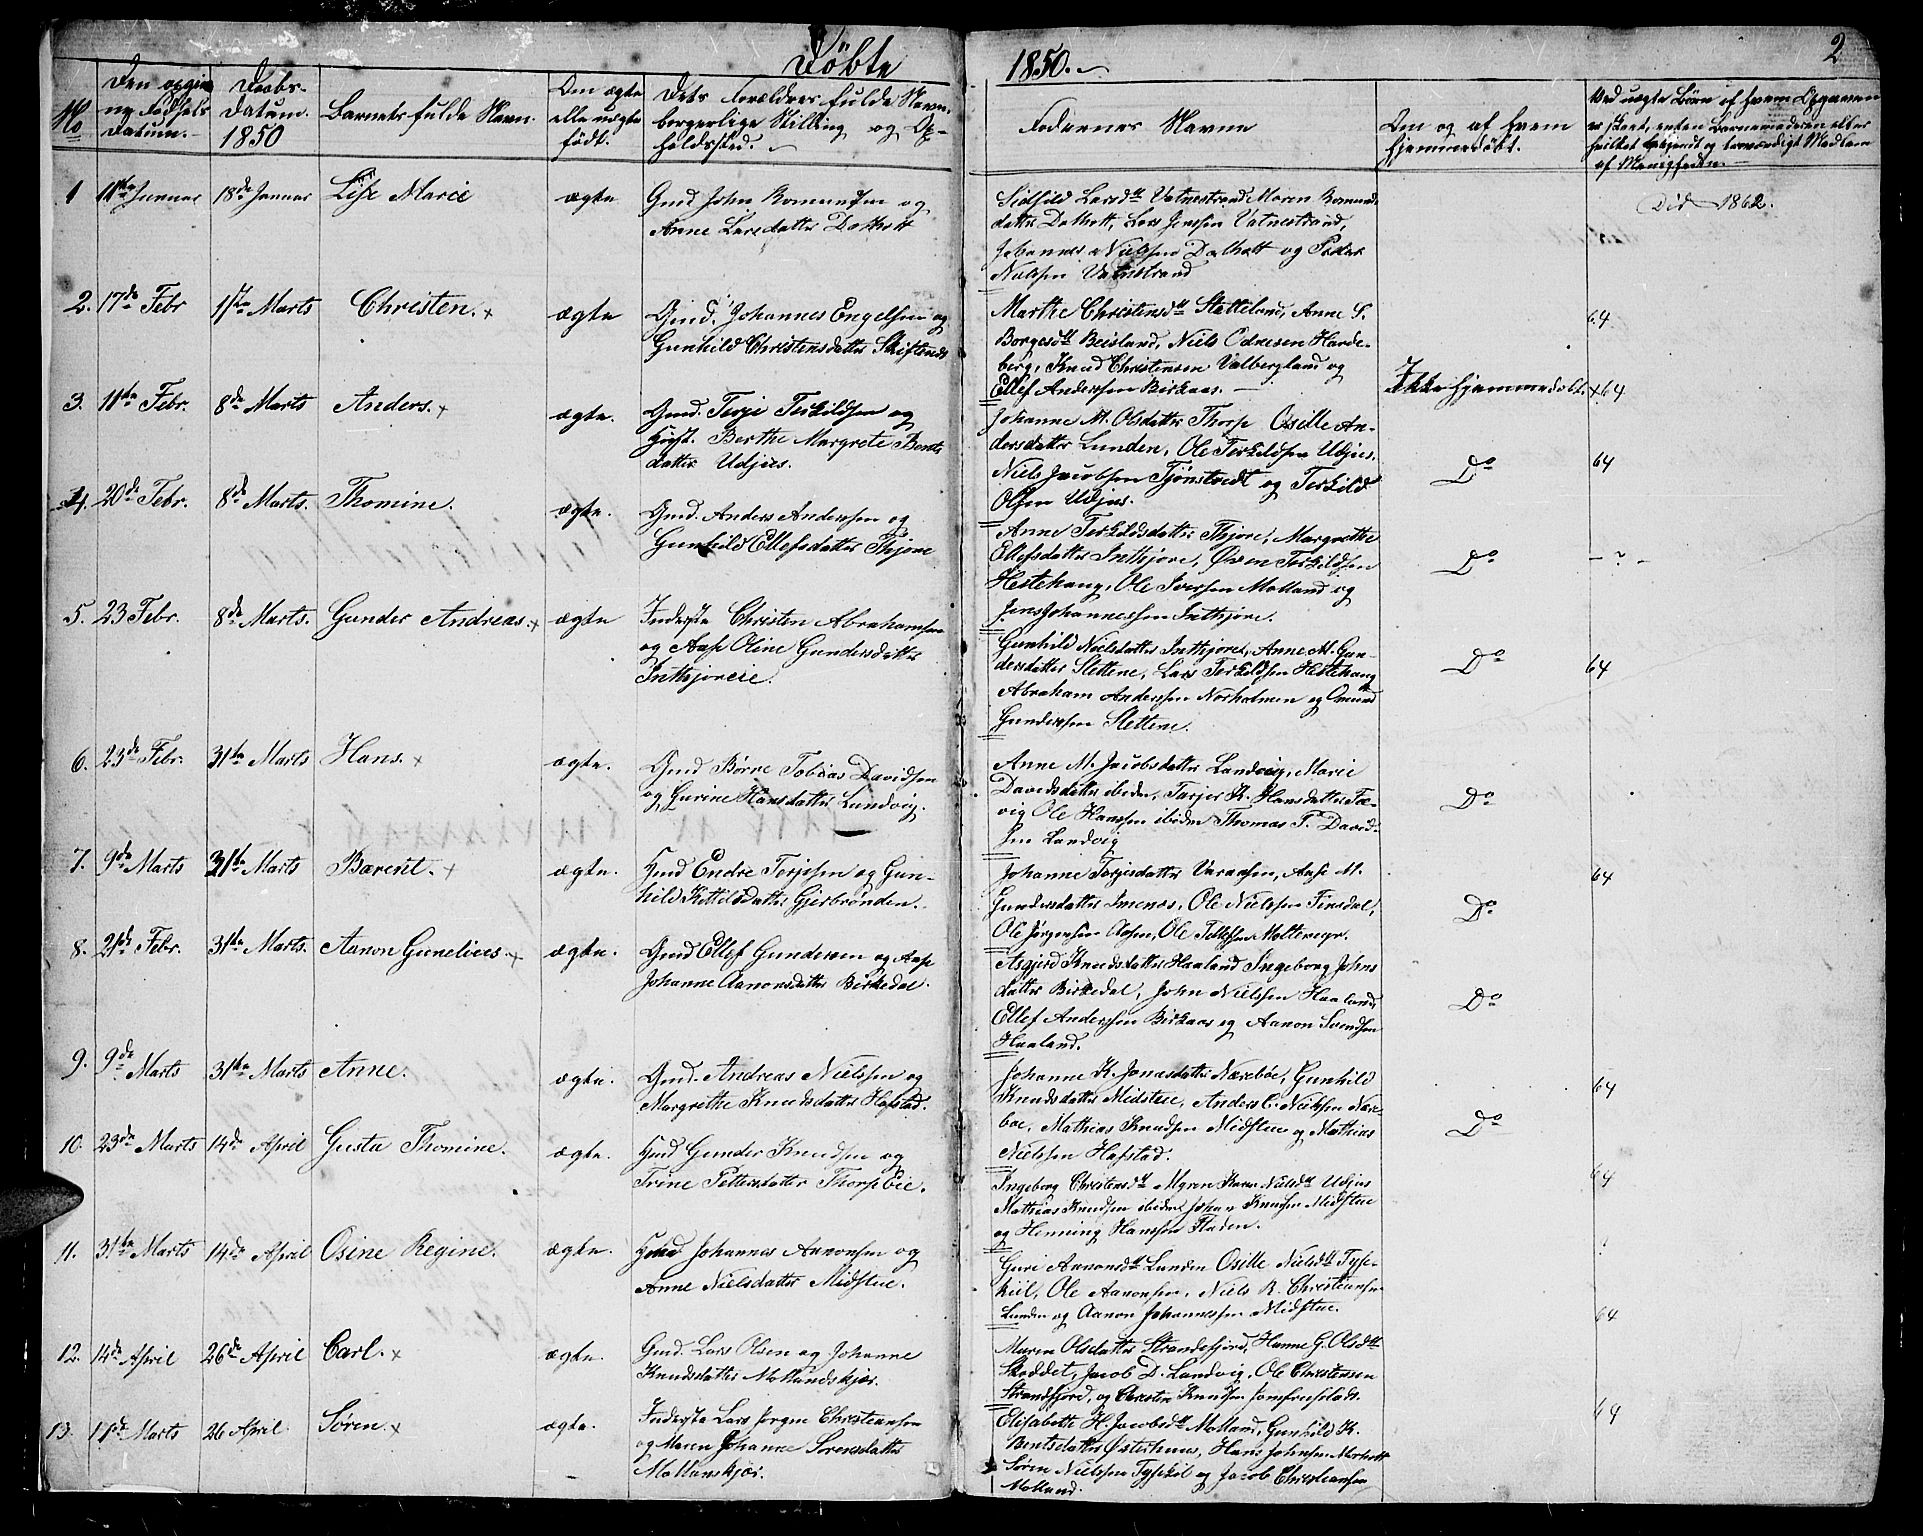 Døbte
1850.
2
No
Den opgiv
ne Fødsels
Datum.
Daabs-
datum.
1850
Barnets fulde Navn.
Om ægte
elle uægte
født.
Dets Forældres fulde Navn,
borgerlige Stilling og Op-
holdssted.
Faddernes Navne
Om og af hvem
hjemmedøbt.
Ved uægte Børn af hvem Opgaven
er skeet, enten Barnemoderen eller
hvilket bekjendt og troværdigt Medlem
af Menigheden.
1 11te Januar 18de Januar Lise Marie ægte Gmd John Romundsen og
Anne Larsdatter Dalholt
Larsdtt Vatnestrand Maren Romunds
datter Dalholt, Lars Jensen Vatnestrand,
Johannes Nielsen Dalholt og Peder
Nielsen Vatnestrand
Did 1862.
2. 17de Febr 1ste Marts Christen. ægte Gmd. Johannes Engelsen og
Gunhild Christensdatter Skiftenes
Marthe Christensdtt Stalleland, Anne S.
Borgesdtt Beisland, Niels Odnesen Harde-
berg, Knud Christensen Valbergland og
Ellef Anderssen Birkaas.
64
3. 11te Febr. 8de Marts Anders. ægte. Gmd. Terje Terkildsen og
Hust. Berthe Margrete Bents
datter Udjus.
Johanne M. Olsdatter Thorp Osille An-
dersdatter Lunden, Ole Terkildsen Udjus,
Niels Jacobsen Tjønstvedt og Terkild
Olsen Udjus.
Ikke hjemmedøbt. 64
Do 64
4. 20de Febr. 8de Marts. Thomine. ægte. Gmd. Anders Anderssen og
Gunhild Ellefsdatter Thjøre
Anne Terkildsdatter Thjøre, Margrethe
Ellefsdatter Inthjøre, Øven Terkildsen
Hestehang, Ole Iverssen Molland og
Jens Johannessen Inthjøre.
Do - ? -
5. 23 Febr. 8de Marts. Gunder Andreas. ægte Inderste Christen Abrahamsen
og Aase Oline Gundersdatter
Inthjøreeie.
Gunhild Nielsdatter Inthjøre, Anne M. Gun-
dersdatter Slettene, Lars Terkildsen Hestehang
Abraham Anderssen Norholmen og Omund
Gunderssen Slettene.
Do 64
6. 23de Febr. 31te Marts Hans. ægte. Gmd Børre Tobias Davidsen
og Gurine Hansdatter Landvig.
Anne M. Jacobsdatter Landvig, Marie
Davidsdatter ibiden, Tarjer K. Hansdatter Fæ-
vig Ole Hanssen ibiden Thomas T. David-
sen Landvig
Do
7. 9de Marts 31te Marts Bærent. ægte. Hmd Endre Terjesen og Gun-
hild Kittelsdatter Gjerbrønden.
Johanne Terjesdatter Varaasen, Aase M.
Gundersdatter Imenæs, Ole Nielssen Finsdal,
Ole Jørgensen Aasen, Ole Tellefsen Moltemyr.
Do 64
8. 21de Febr. 31te Marts. Aanon Gunelius. ægte. Gmd Ellef Gundersen og Aase
Johanne Aanonsdatter Birkedal.
Asgjerd Knudsdatter Haaland Ingeborg Johns
datter Birkedal, John Nielssen Haaland,
Ellef Anderssen Birkaas og Aanon Svendsen
Haaland.
Do
9. 9de Marts 31te Marts Anne. ægte. Gmd. Andreas Nielssen og
Margrethe Knudsdatter Hafstad.
Johanne K. Jonasdatter Nærebøe, Gunhild
Knudsdatter Midstue, Anders C. Nielssen Nære-
bøe, Mathias Knudsen Midstue og Mathias
Nielssen Hafstad.
Do 64
10. 23de Marts 14de April Gusta Thomine. ægte. Hmd Gunder Knudsen og
Trine Pettersdatter Thorp Eie.
Ingeborg Christensdtt Myren Karen Nielsdtt Udjus
Mathias Knudsen ibiden Johan Knudsen Midstue
og Henning Hanssen Fladen.
64
11. 31te Marts 14de April Osine Regine. ægte. Hmd Johannes Aanonsen og
Anne Nielsdatter Midstue.
Gure Aanonsdtt Lunden Osille Nielsdtt Tyse-
kiil, Ole Aanonsen, Niels R. Christiansen
Lunden og Aanon Johannessen Midstue.
64
12. 14de April 26de April Carl. ægte. Gmd. Lars Olsen og Johanne
Knudsdatter Mollandskjær.
Maren Olsdatter Strandefjord, Hanne G. Olsdtt
Skoddet, Jacob D. Landvig, Ole Christensen
Strandfjord, og Christen Knudsen Jomfruplads.
13. 11te Marts 26 April. Søren. ægte. Inderste Lars Jørgen Christiansen
og Maren Johanne Sørensdatter
Mollandskjær.
Elisabeth H. Jacobsdtt Molland, Gunhild K.
Bentsdatter Østerhuus, Hans Johnsen Morholt
Søren Nielssen Tysekil og Jacob Christiansen
Molland.
64